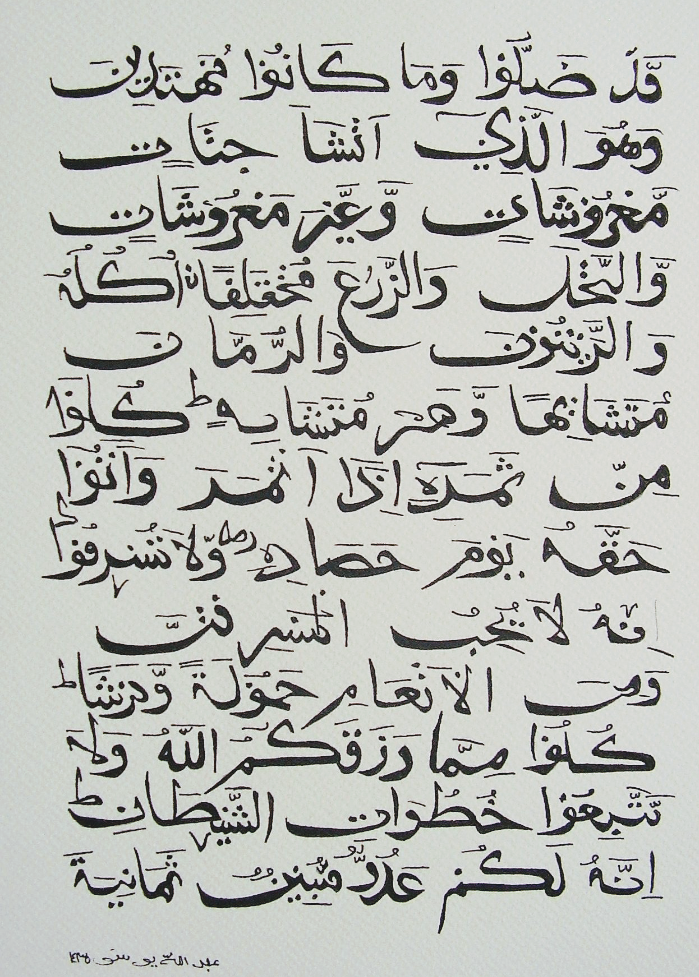 قَدْ ضَلُّوْا وَمَا كَانُوْا مُهْتَدِيْنَ
وَهُوَ الَّذِيْ اَنْشَاَ جَنّٰاتٍ
مَّعْرُوْشَاتٍ وَّغَيْرَ مَعْرُوْشَاتٍ
وَّالنَّخْلَ وَالزَّرْعَ مُخْتَلِفًا اُكُلُهٗ
وَالزَّيْتُوْنَ وَالرُّمَّانَ
مُتَشَابِهًا وَّغَيْرَ مُتَشَابِهٍ ط كُلُوْا
مِنْ ثَمَرِهٖ اِذَا اَثْمَرَ وَاٰتُوْا
حَقَّهٗ يَوْمَ حَصَادِهٖ وَلَا تُسْرِفُوْا
اِنَّهٗ لَا يُحِبُّ الْمُسْرِفِيْنَ
وَمِنَ الْاَنْعَامِ حَمُوْلَةً وَّفَرْشًا ط
كُلُوْا مِمَّا رَزَقَكُمُ اللّٰهُ وَلَا
تَتَّبِعُوْا خُطُوَاتِ الشَّيْطَانِ ط
اِنَّهٗ لَكُمْ عَدُوٌّ مُّبِيْنٌ ثَمَانِيَةَ